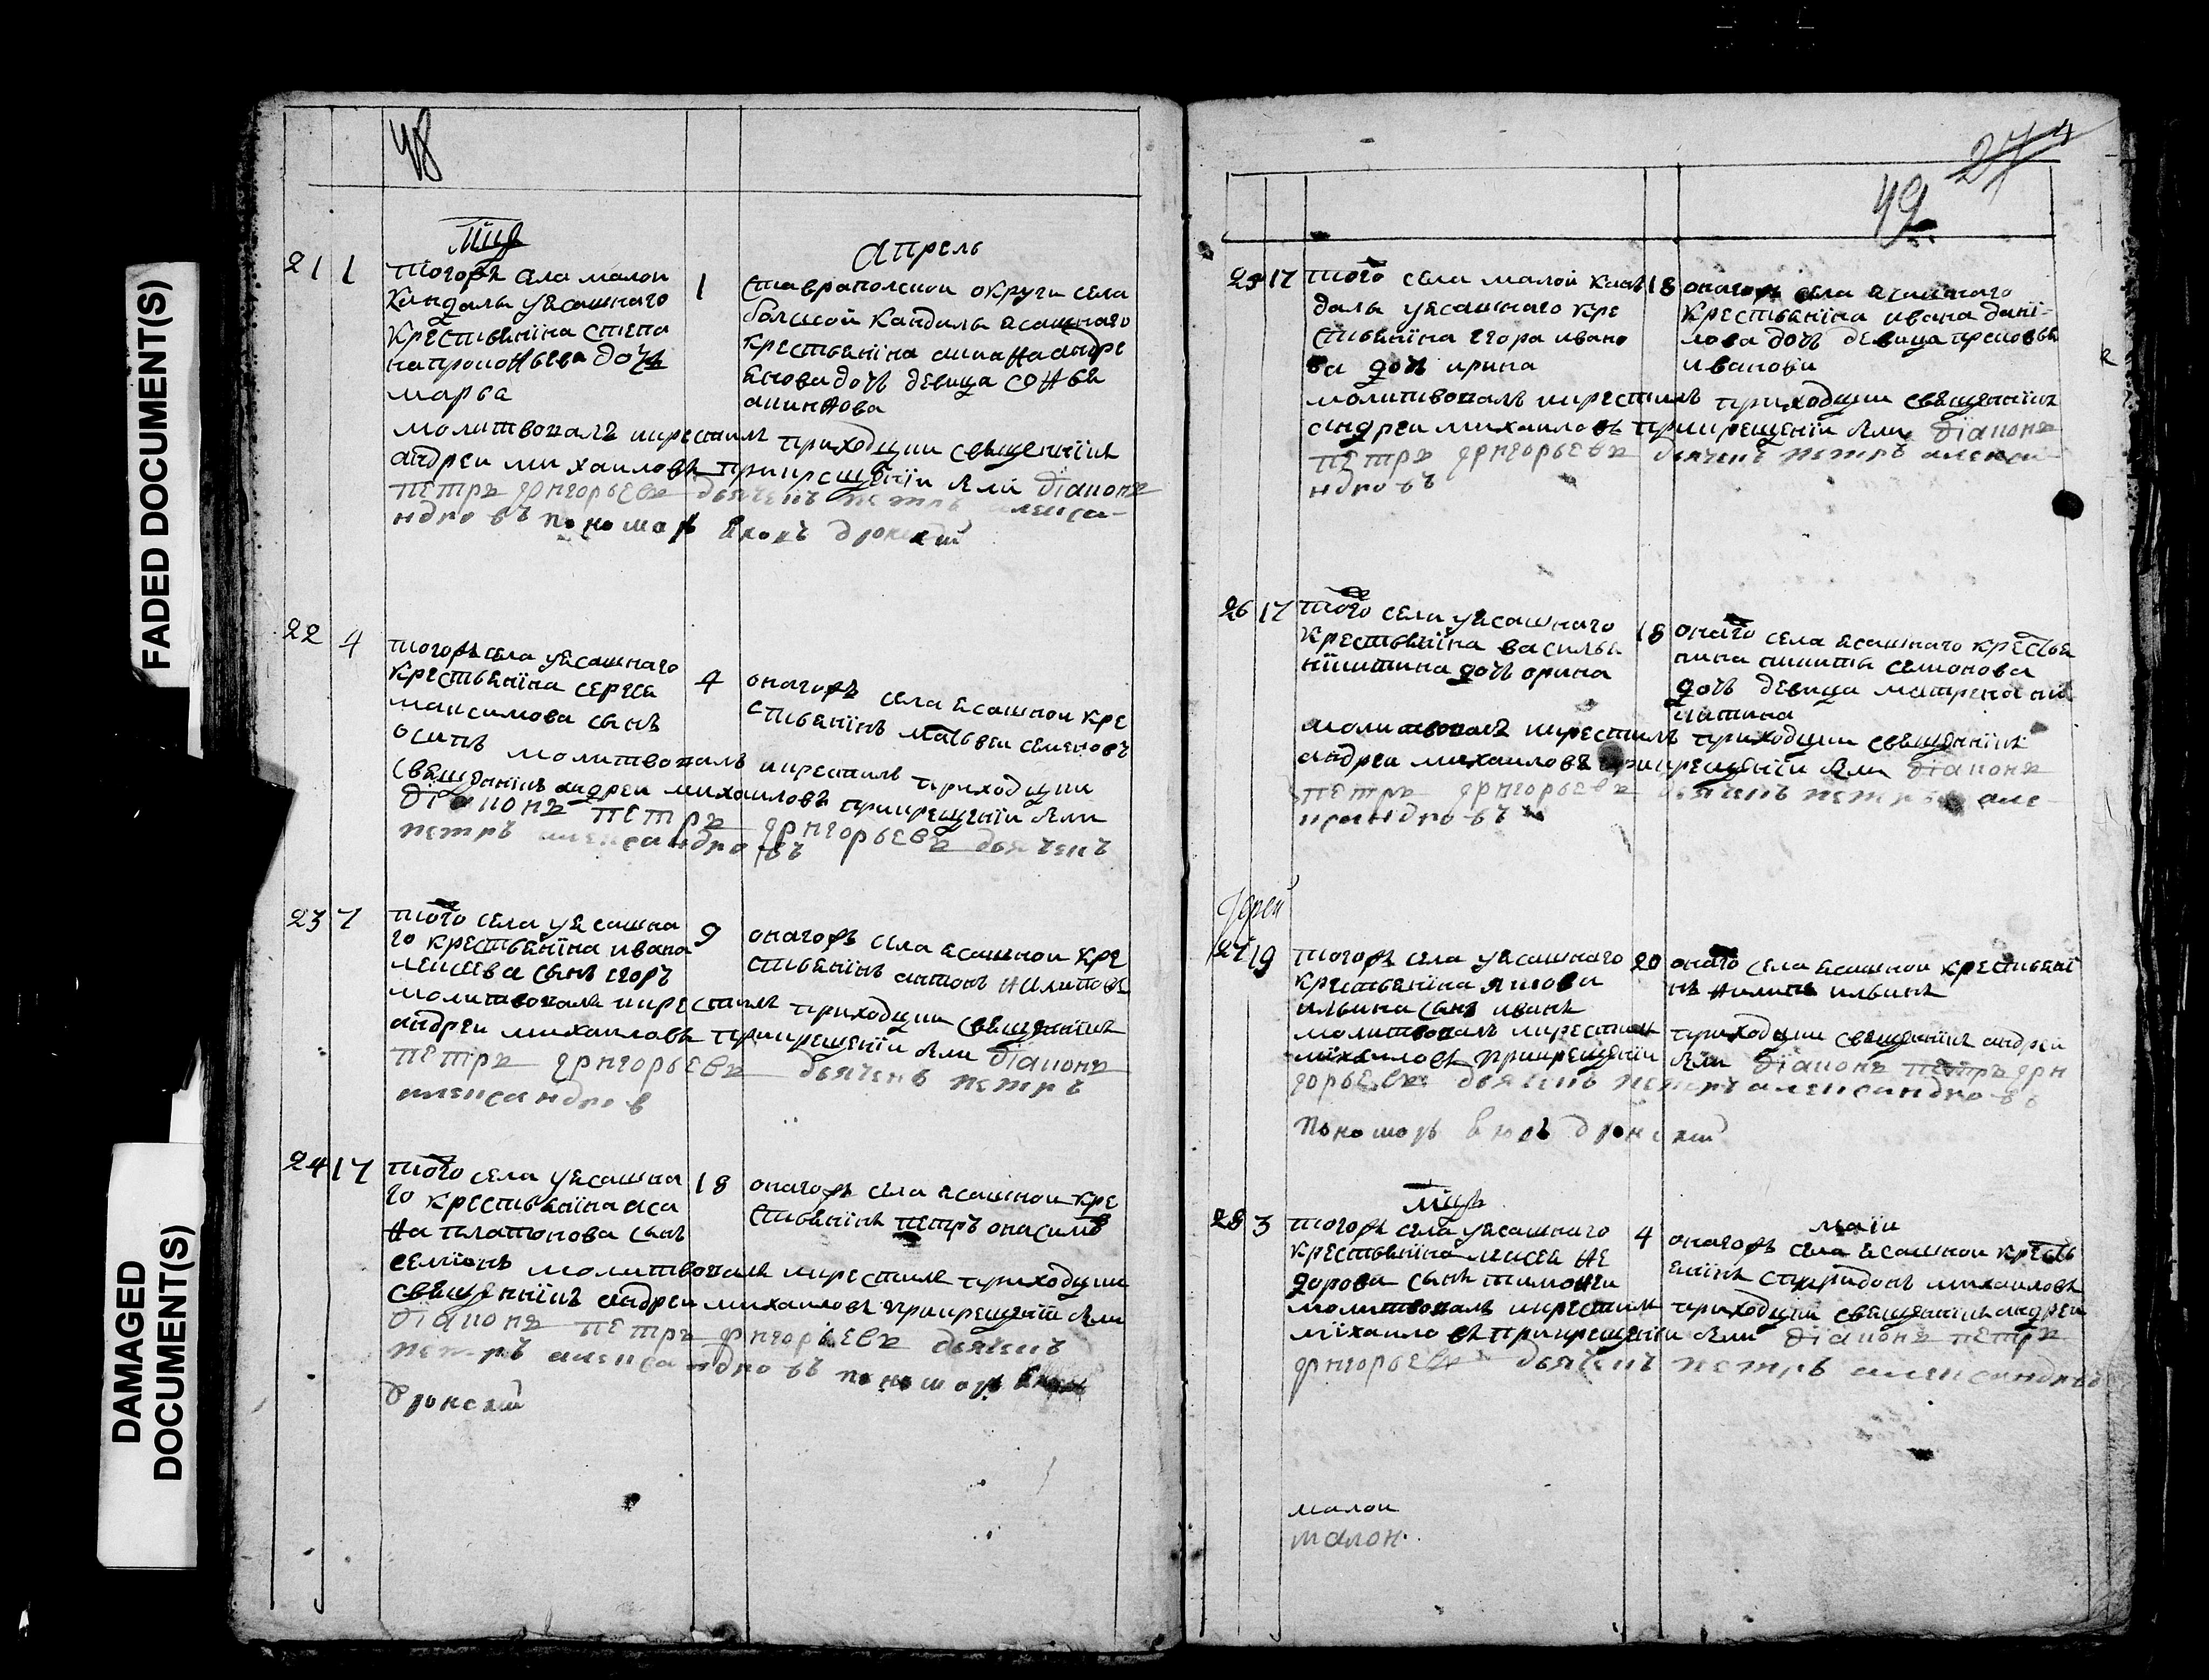 FADED DOCUMENT(S)
DAMAGED
DOCUMENT(S)
48
Мца
Апрель
21 1
тогожъ села малои
Кандалы уясашнаго
крестьянина степа
на прокофьева дочь
марфа
1
ставрапольскои округи села
болшой Кандалы ясашнаго
крестьянина
дочь девица софья
молитвовалъ икрестилъ приходцки священникъ
андреи михаиловъ прикрещении были диаконъ
петръ григорьевъ дьячекъ петръ алекса-
ндровъ пономарь
22 4
тогожъ села уясашнаго
крестьянина сергея
максимова сынъ
осипъ
4
оногожъ села ясашнои кре
стьянинъ матвеи семеновъ
молитвовалъ икрестилъ приходцки
священникъ андреи михаиловъ прикрещении были
диаконъ петръ григорьевъ дьячекъ
петръ александровъ
23 7
того села уясашна
го крестьянина ивана
сынъ егоръ
9
оногожъ села ясашнои кре
стьянинъ антонъ филиповъ
молитвовалъ икрестилъ приходцки священникъ
андреи михаиловъ прикрещении были диаконъ
петръ григорьевъ дьячекъ петръ
александров
24 17
того села уясашна
го крестьянина аса
фа платонова сынъ
семионъ
18
оногожъ села ясашнои кре
стьянинъ петръ
молитвовалъ икрестилъ приходцки
священникъ андреи михаиловъ прикрещении были
диаконъ петръ григорьевъ дьячекъ
петръ александровъ пономарь
49
25 17
того села малой кан
далы уясашнаго кре
стьянина егора ивано
ва дочь ирина
18
оногожъ села ясашнаго
крестьянина ивана дани-
лова дочь девица
иванова
молитвовалъ икрестилъ приходцки священникъ
андреи михаиловъ прикрещении были диаконъ
петръ григорьевъ дьячекъ петръ алекса-
ндровъ
26 17
того села уясашнаго
крестьянина василья
никитина дочь орина
18
онаго села ясашнаго крестья
нина никиты семионова
дочь девица матрена ни
китина
молитвовалъ икрестилъ приходцки священникъ
андреи михаиловъ прикрещении были диаконъ
петръ григорьевъ дьячекъ петръ але-
ксандровъ
27 19
тогожъ села уясашнаго
крестьянина якова
ильина сынъ иванъ
20
онаго села ясашнои крестьяни
нъ филипъ ильинъ
молитвовалъ икрестилъ приходцки священникъ андреи
михаиловъ прикрещении были диаконъ петръ гри
горьевъ дьячекъ петръ александровъ
пономарь
Мца
маiи
28 3
тогожъ села уясашнаго
крестьянина
дорова сынъ тимофеи
4
оногожъ села ясашнои кресть
янинъ спиридонъ михаиловъ
молитвовалъ икрестилъ приходцки священникъ андреи
михаиловъ прикрещении были диаконъ петръ
григорьевъ дьячекъ петръ александровъ
малои
малои